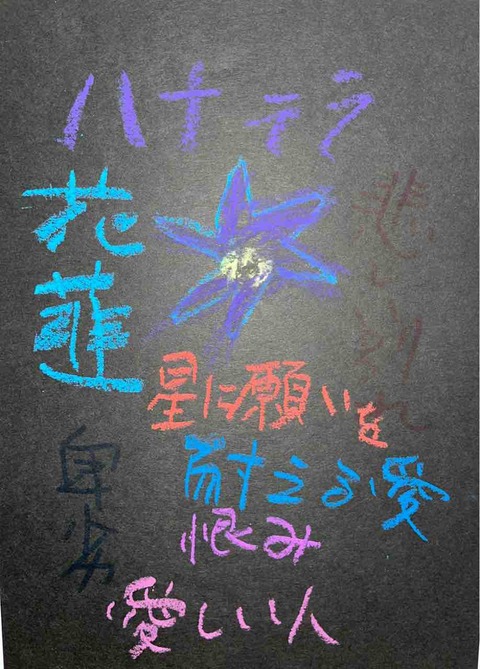 ハナテラ
花韮
悲しい別れ
星に願いを
耐える愛
恨み
卑劣
愛しい人